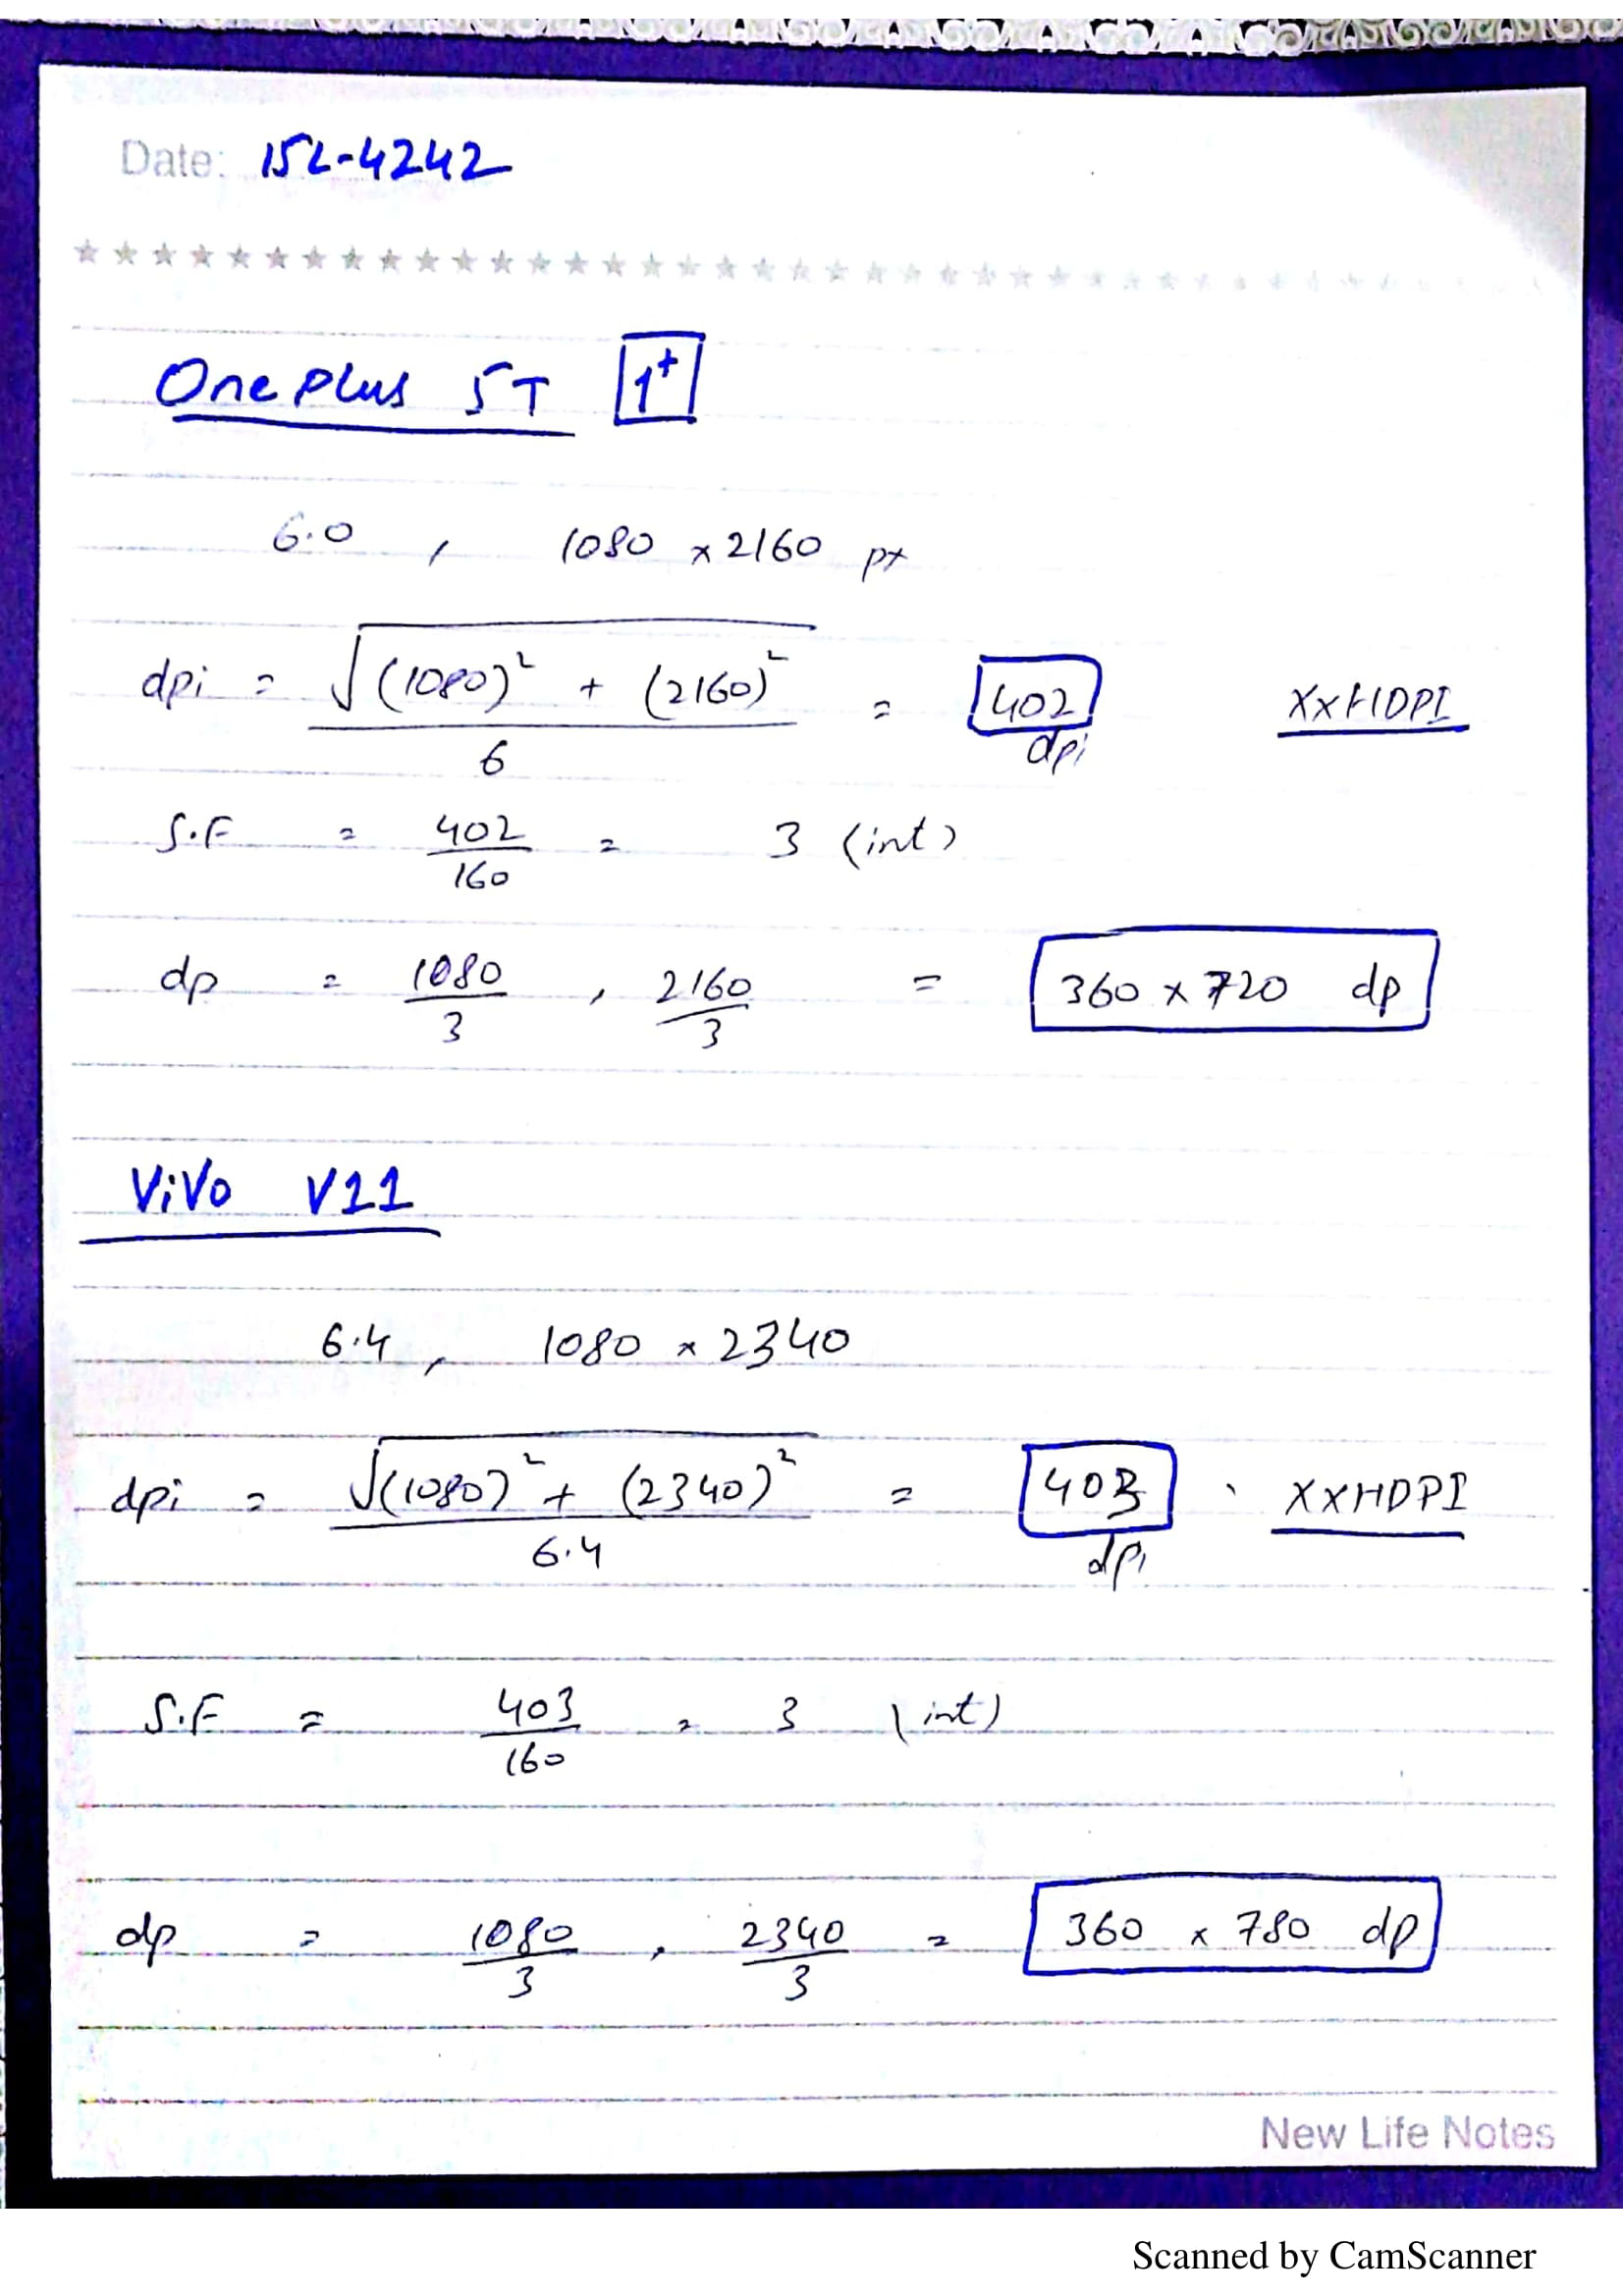 Date: 15L-4242
One Plus 5T 1+
6.0 , 1080 x 2160 px
dpi = √(1080)² + (2160)² / 6 = 402 dpi XXHDPI
S.F = 402 / 160 = 3 (int)
dp = 1080 / 3 , 2160 / 3 = 360 x 720 dp
ViVo V11
6.4 , 1080 x 2340
dpi = √(1080)² + (2340)² / 6.4 = 403 dpi XXHDPI
S.F = 403 / 160 = 3 (int)
dp = 1080 / 3 , 2340 / 3 = 360 x 780 dp
New Life Notes
Scanned by CamScanner